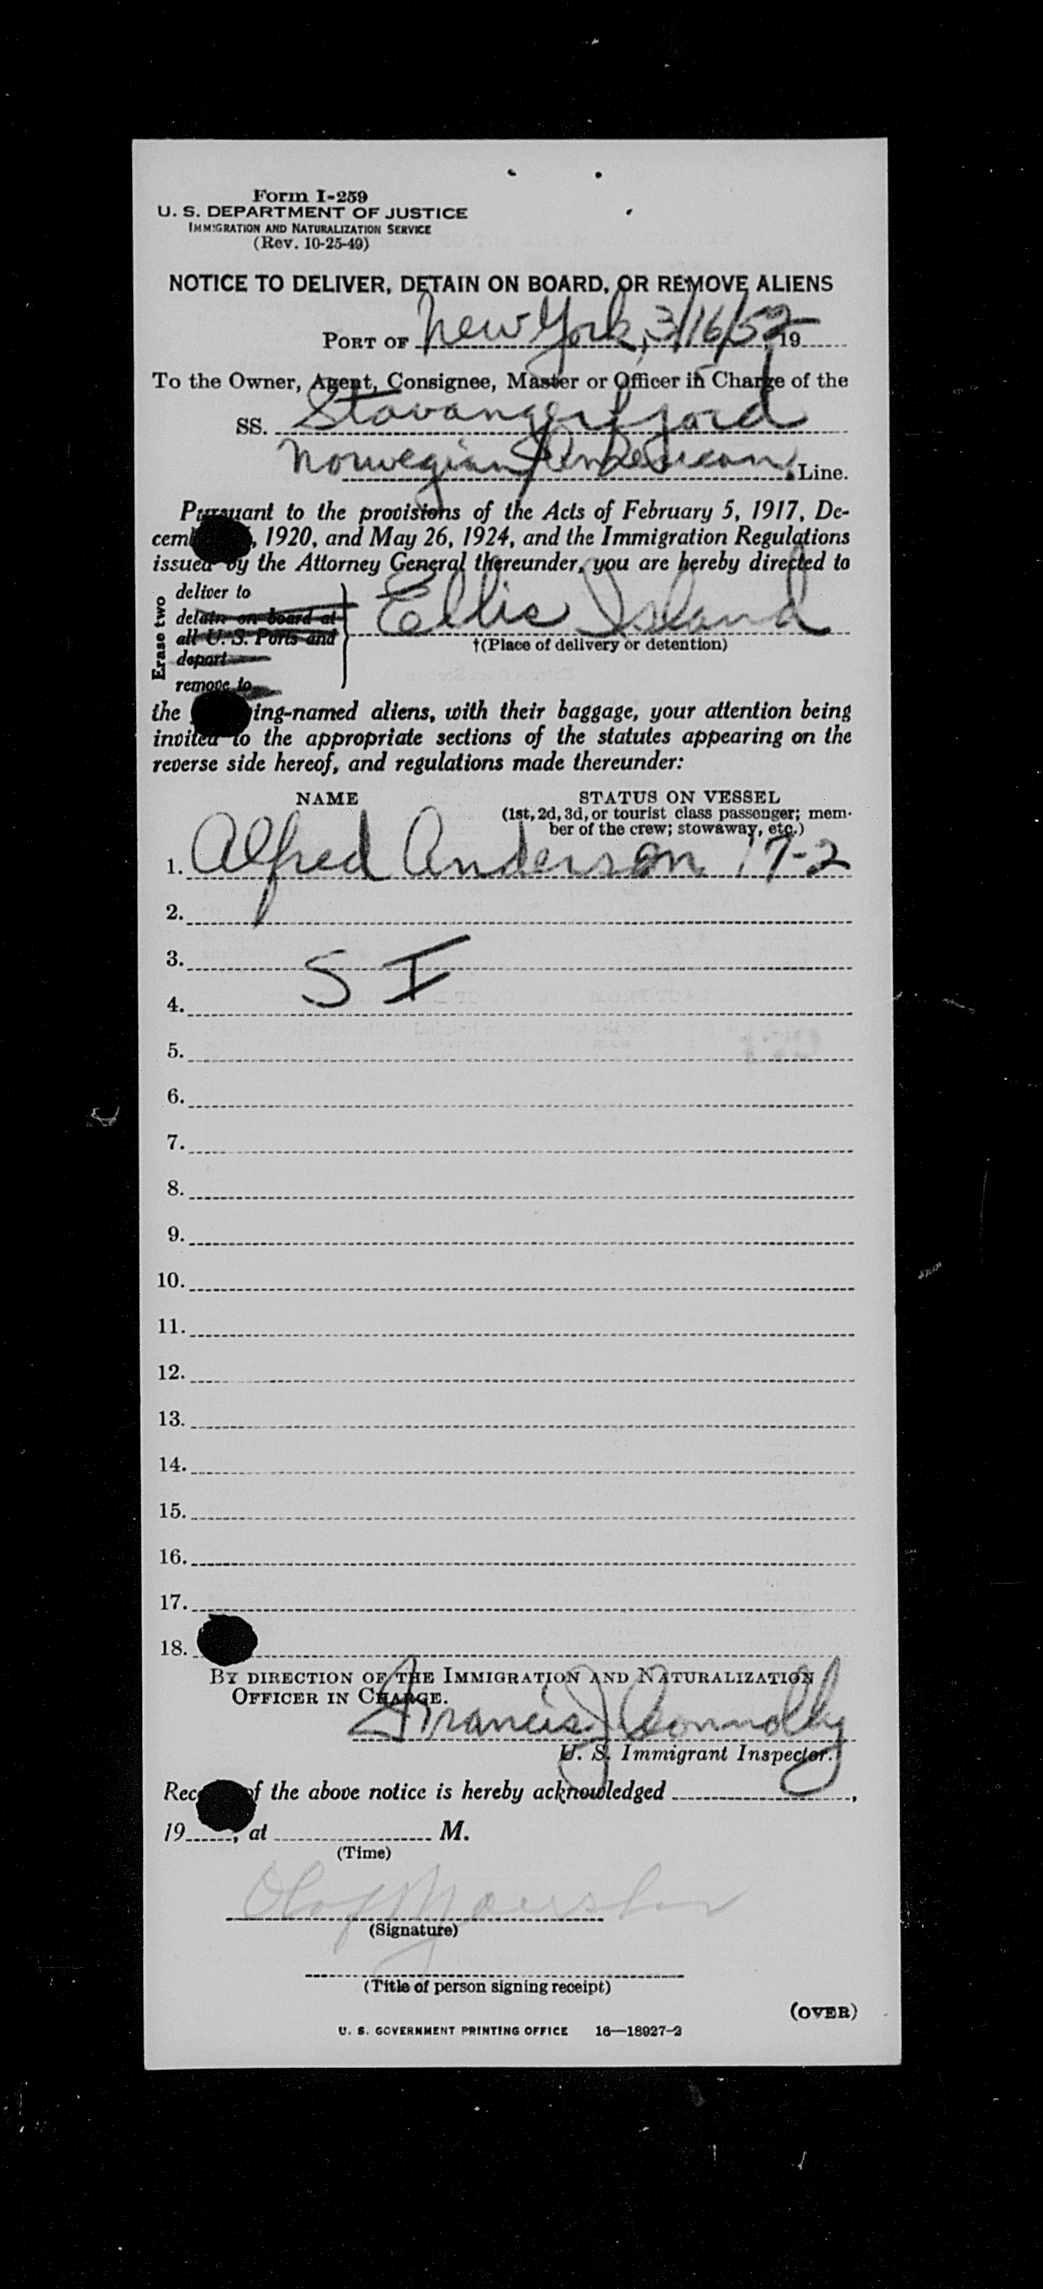 Form I-259
U. S. DEPARTMENT OF JUSTICE
IMMIGRATION AND NATURALIZATION SERVICE
(Rev. 10-25-49)
NOTICE TO DELIVER, DETAIN ON BOARD, OR REMOVE ALIENS
PORT OF New York, 3/16/52, 19
To the Owner, Agent, Consignee, Master or Officer in Charge of the
SS. Stavangerfjord
Norwegian American Line.
Pursuant to the provisions of the Acts of February 5, 1917, De-
cem , 1920, and May 26, 1924, and the Immigration Regulations
issued by the Attorney General thereunder, you are hereby directed to
Erase two
deliver to
detain on board at
all U. S. Ports and
deport
remove to
Ellis Island
†(Place of delivery or detention)
the ing-named aliens, with their baggage, your attention being
invited to the appropriate sections of the statutes appearing on the
reverse side hereof, and regulations made thereunder:
NAME STATUS ON VESSEL
(1st, 2d, 3d, or tourist class passenger; mem-
ber of the crew; stowaway, etc.)
1. Alfred Anderson 17-2
2.
3.
S I
4.
5.
6.
7.
8.
9.
10.
11.
12.
13.
14.
15.
16.
17.
18.
BY DIRECTION OF THE IMMIGRATION AND NATURALIZATION
OFFICER IN CHARGE.
Francis J Connolly
U. S. Immigrant Inspector.
Rec of the above notice is hereby acknowledged ,
19 , at M.
(Time)
Olaf
(Signature)
(Title of person signing receipt)
(OVER)
U. S. GOVERNMENT PRINTING OFFICE 16—18927-2